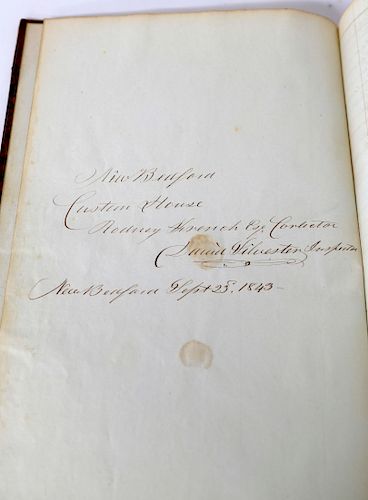 New Bedford
Custom House
Rodney French Esq. Collector
David Silvester Inspector
New Bedford Sept 23, 1843